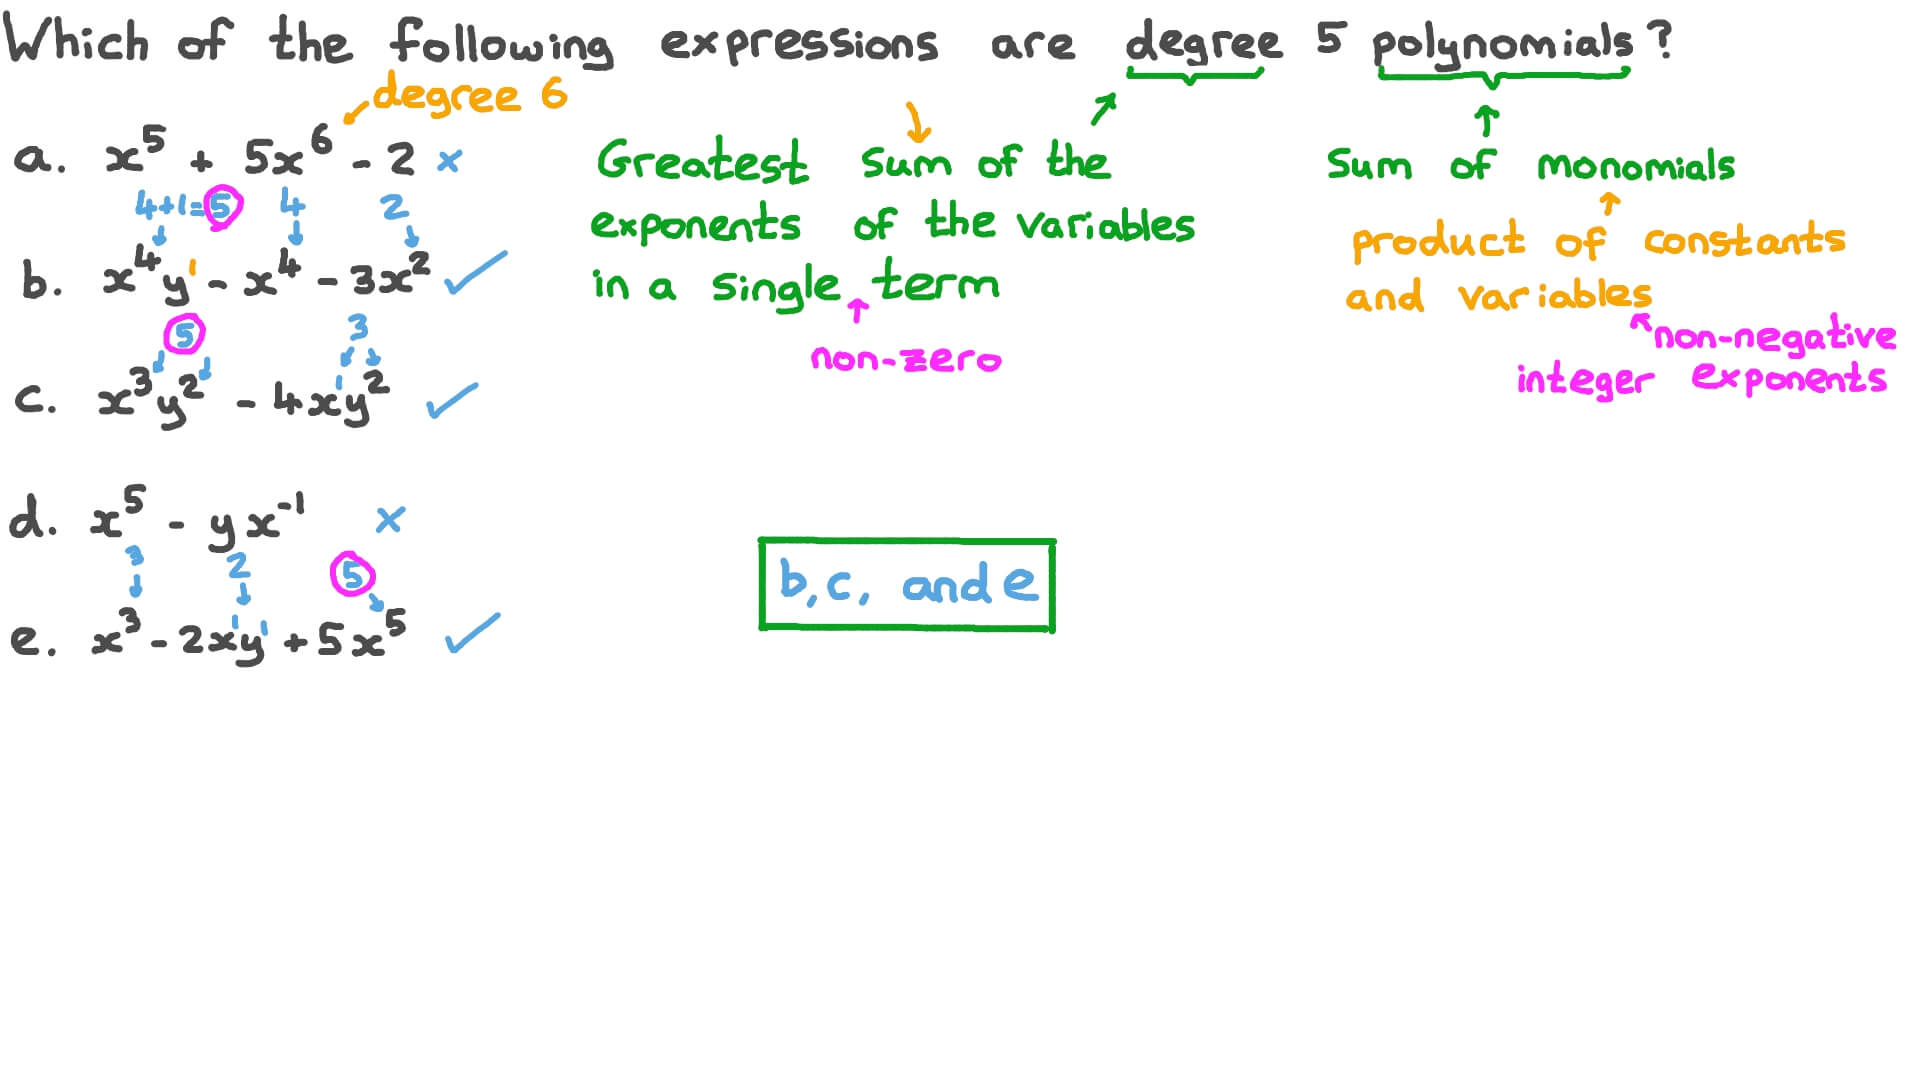 Which of the following expressions are degree 5 polynomials?
degree 6
a. x⁵ + 5x⁶ - 2 ×
4+1=5 4 2
b. x⁴y¹ - x⁴ - 3x² ✓
5 3
c. x³y² - 4x¹y² ✓
d. x⁵ - yx⁻¹ ×
3 2 5
e. x³ - 2x¹y¹ + 5x⁵ ✓
Greatest sum of the
exponents of the variables
in a single term
non-zero
Sum of monomials
product of constants
and variables
non-negative
integer exponents
b, c, and e